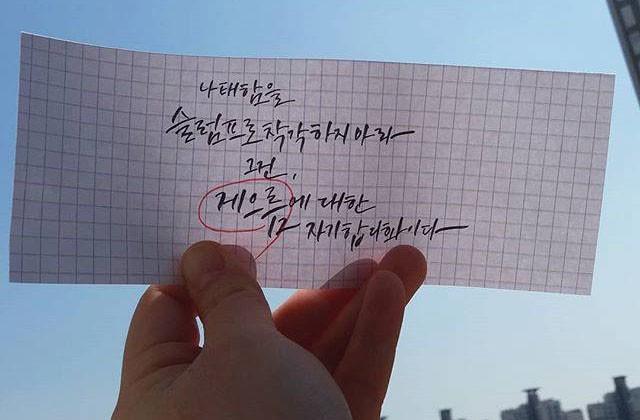 나태함을
슬럼프로 착각하지 마라
그건,
게으름에 대한
자기합리화이다